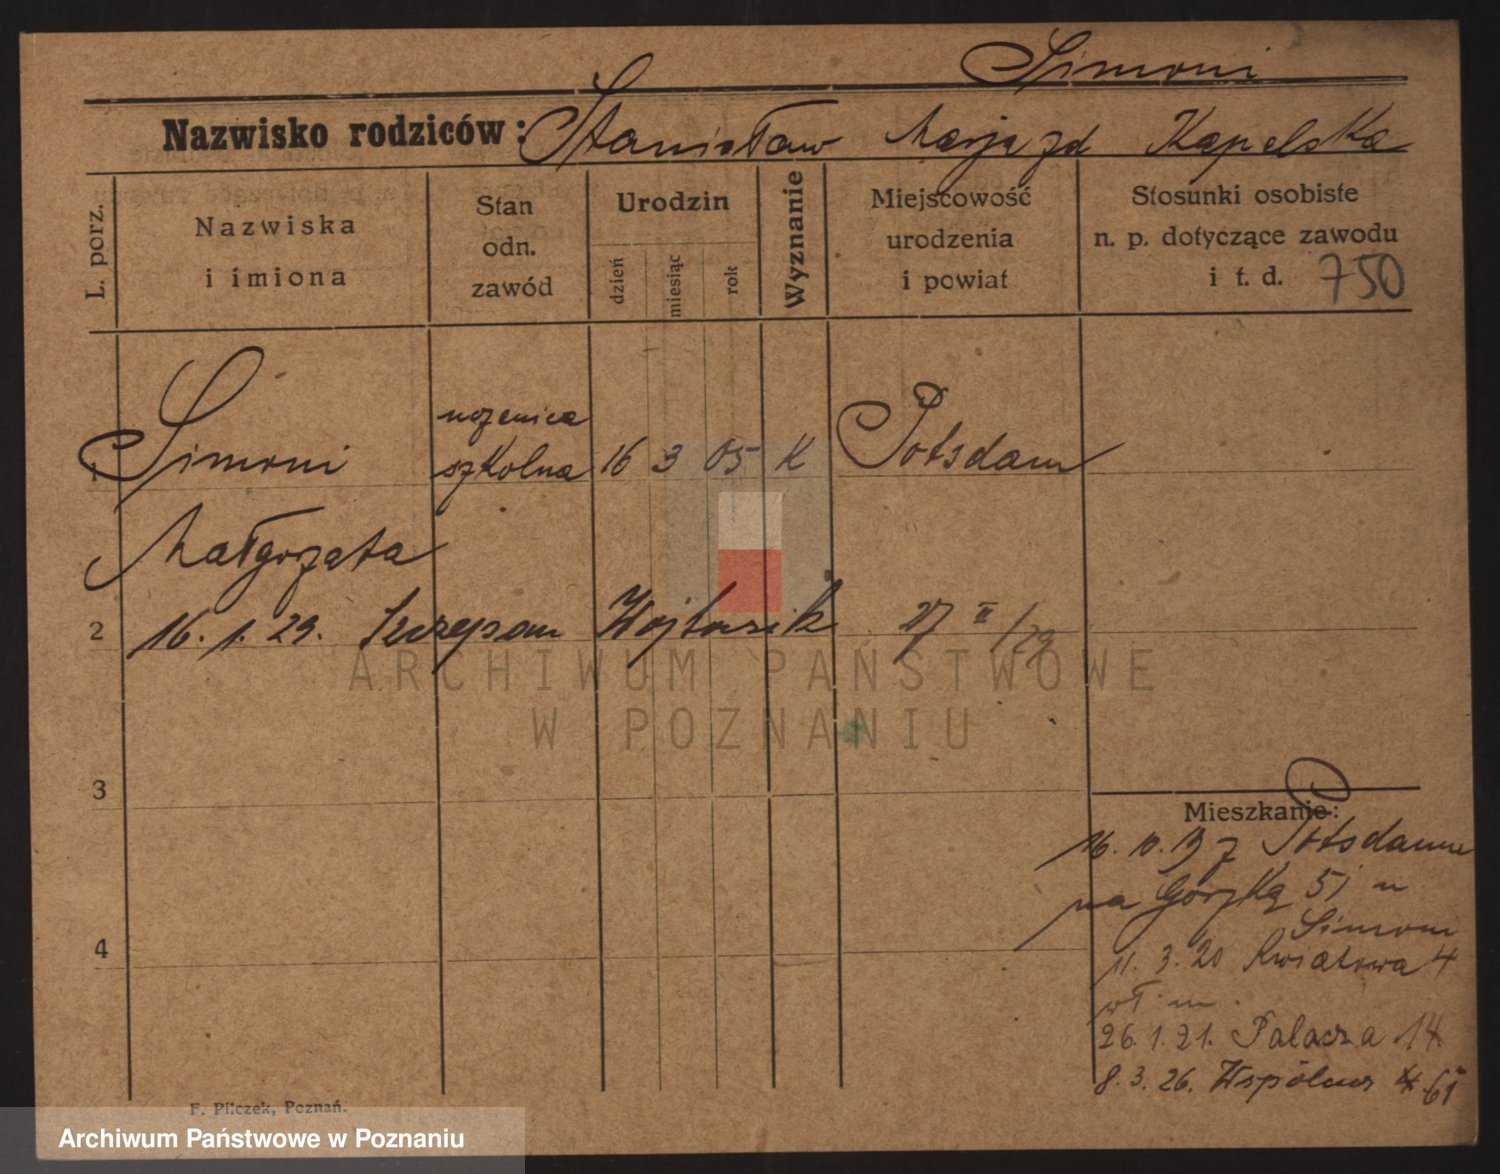 Simoni
Nazwisko rodziców: Stanisław Marja zd Kapelska
L. porz.
Nazwiska
i imiona
Stan
odn.
zawód
Urodzin
dzień
miesiąc
rok
Wyznanie
Miejscowość
urodzenia
i powiat
Stosunki osobiste
n. p. dotyczące zawodu
i t. d. 750
uczenica
1 Simoni szkolna 16 3 05 K Potsdam
Małgorzata
2 16. 1. 29. Szczepan Wojtasik 27 II/29
ARCHIWUM PAŃSTWOWE
W POZNANIU
3
Mieszkanie:
16. 10. 19 z Potsdamu
na Górzką 51 u
Simoni
4
11. 3. 20 Kwiatowa 4
26. 1. 21. Palacza 14
8. 3. 26. Wspólna 61
F. Pilczek, Poznań.
Archiwum Państwowe w Poznaniu